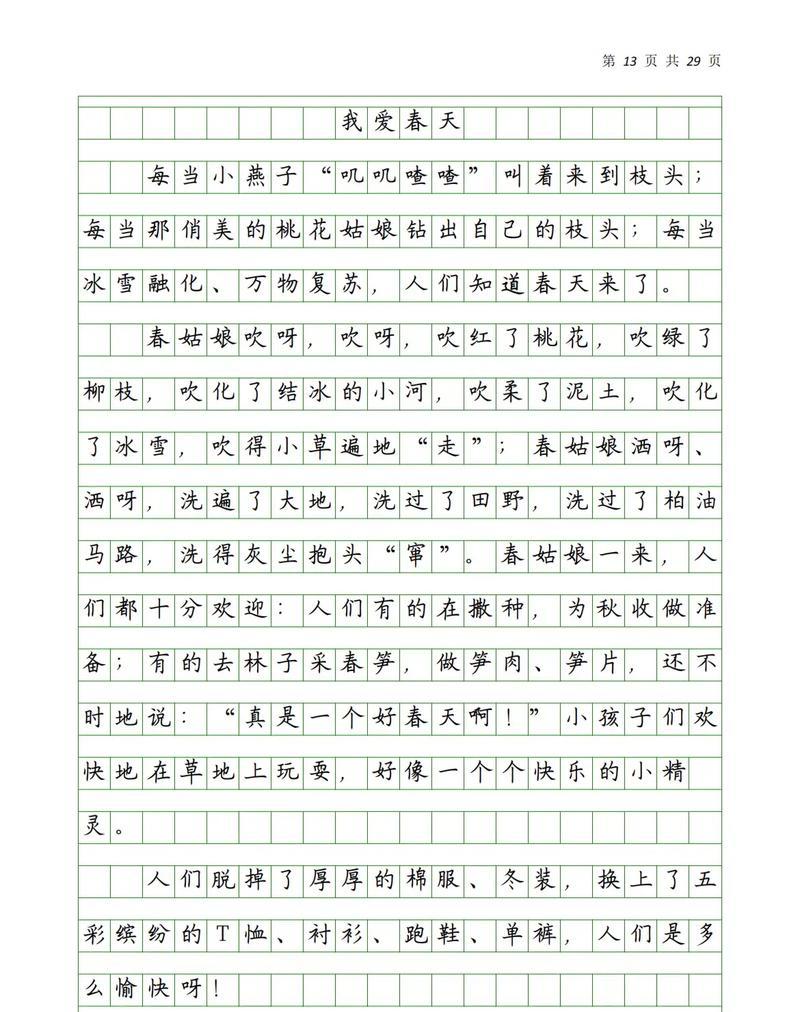 第 13 页 共 29 页
我爱春天
每当小燕子“叽叽喳喳”叫着来到枝头；
每当那俏美的桃花姑娘钻出自己的枝头；每当
冰雪融化、万物复苏，人们知道春天来了。
春姑娘吹呀，吹呀，吹红了桃花，吹绿了
柳枝，吹化了结冰的小河，吹柔了泥土，吹化
了冰雪，吹得小草遍地“走”；春姑娘洒呀、
洒呀，洗遍了大地，洗过了田野，洗过了柏油
马路，洗得灰尘抱头“窜”。春姑娘一来，人
们都十分欢迎：人们有的在撒种，为秋收做准
备；有的去林子采春笋，做笋肉、笋片，还不
时地说：“真是一个好春天啊！”小孩子们欢
快地在草地上玩耍，好像一个个快乐的小精
灵。
人们脱掉了厚厚的棉服、冬装，换上了五
彩缤纷的T恤、衬衫、跑鞋、单裤，人们是多
么愉快呀！